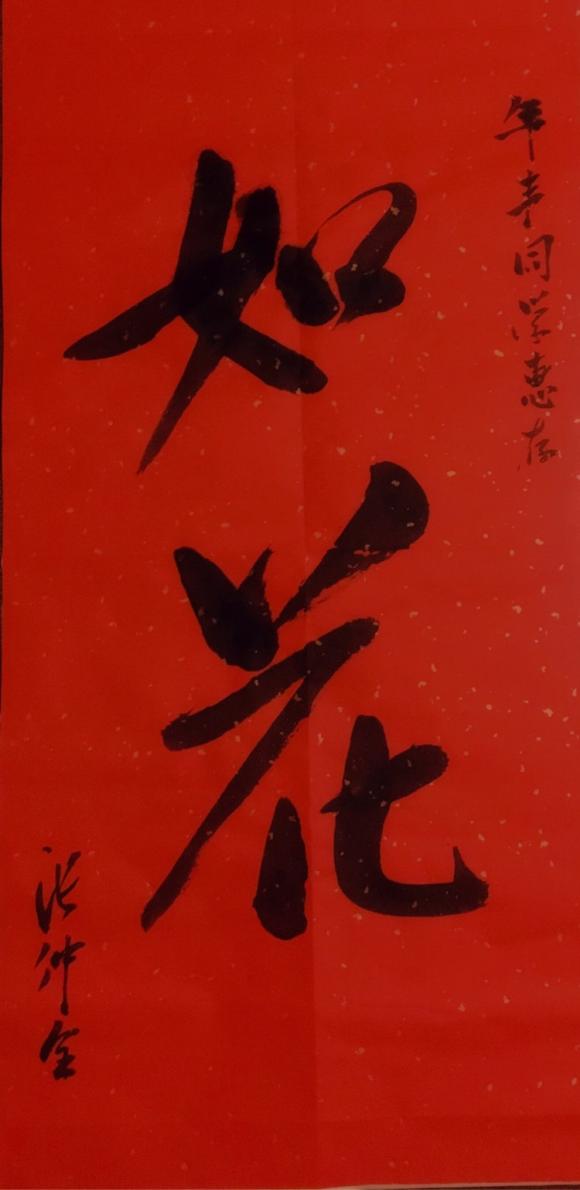 年青同学惠存
如花
张仲全